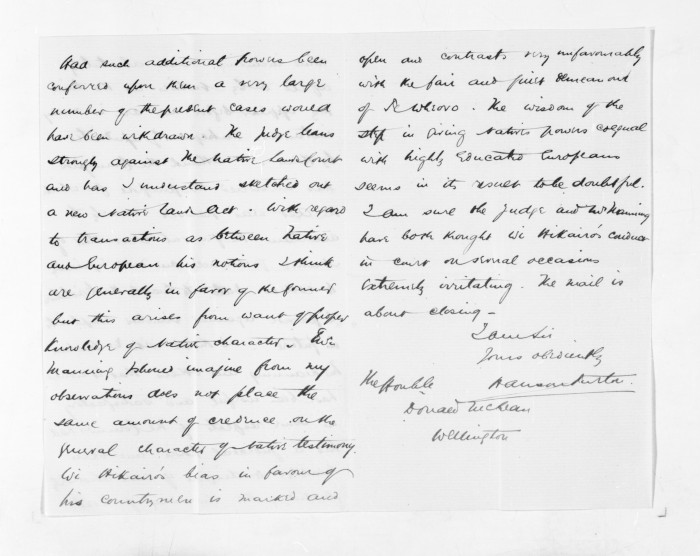 Had such additional powers been
conferred upon them a very large
number of the present cases would
have been withdrawn. The Judge leans
strongly against the Native Land Court
and has I understand sketched out
a new Native Land Act. With regard
to transactions as between Native
and European his notions I think
are generally in favor of the former
but this arises from want of proper
knowledge of Native character.
Manning I should imagine from my
observations does not place the
same amount of credence on the
general character of Native testimony.
Wi Hikairo's bias in favour of
his countrymen is marked and
open and contrasts very unfavourably
with the fair and just demeanour
of The wisdom of the
step in giving Natives powers coequal
with highly Educated Europeans
seems in its result to be doubtful.
I am sure the Judge and Mr Manning
have both thought Wi Hikairo's conduct
in court on several occasions
Extremely irritating. The mail is
about closing -
I am Sir
Yours obediently
Hanson Turton.
The Honble
Donald McLean
Wellington